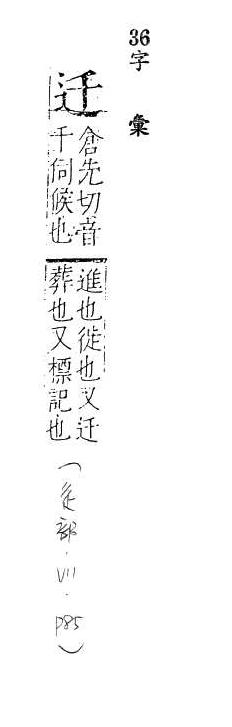 36
字彙
迁
倉先切音
千伺候也
進也徙也又迁
葬也又標記也
(辵部·VII·P85)